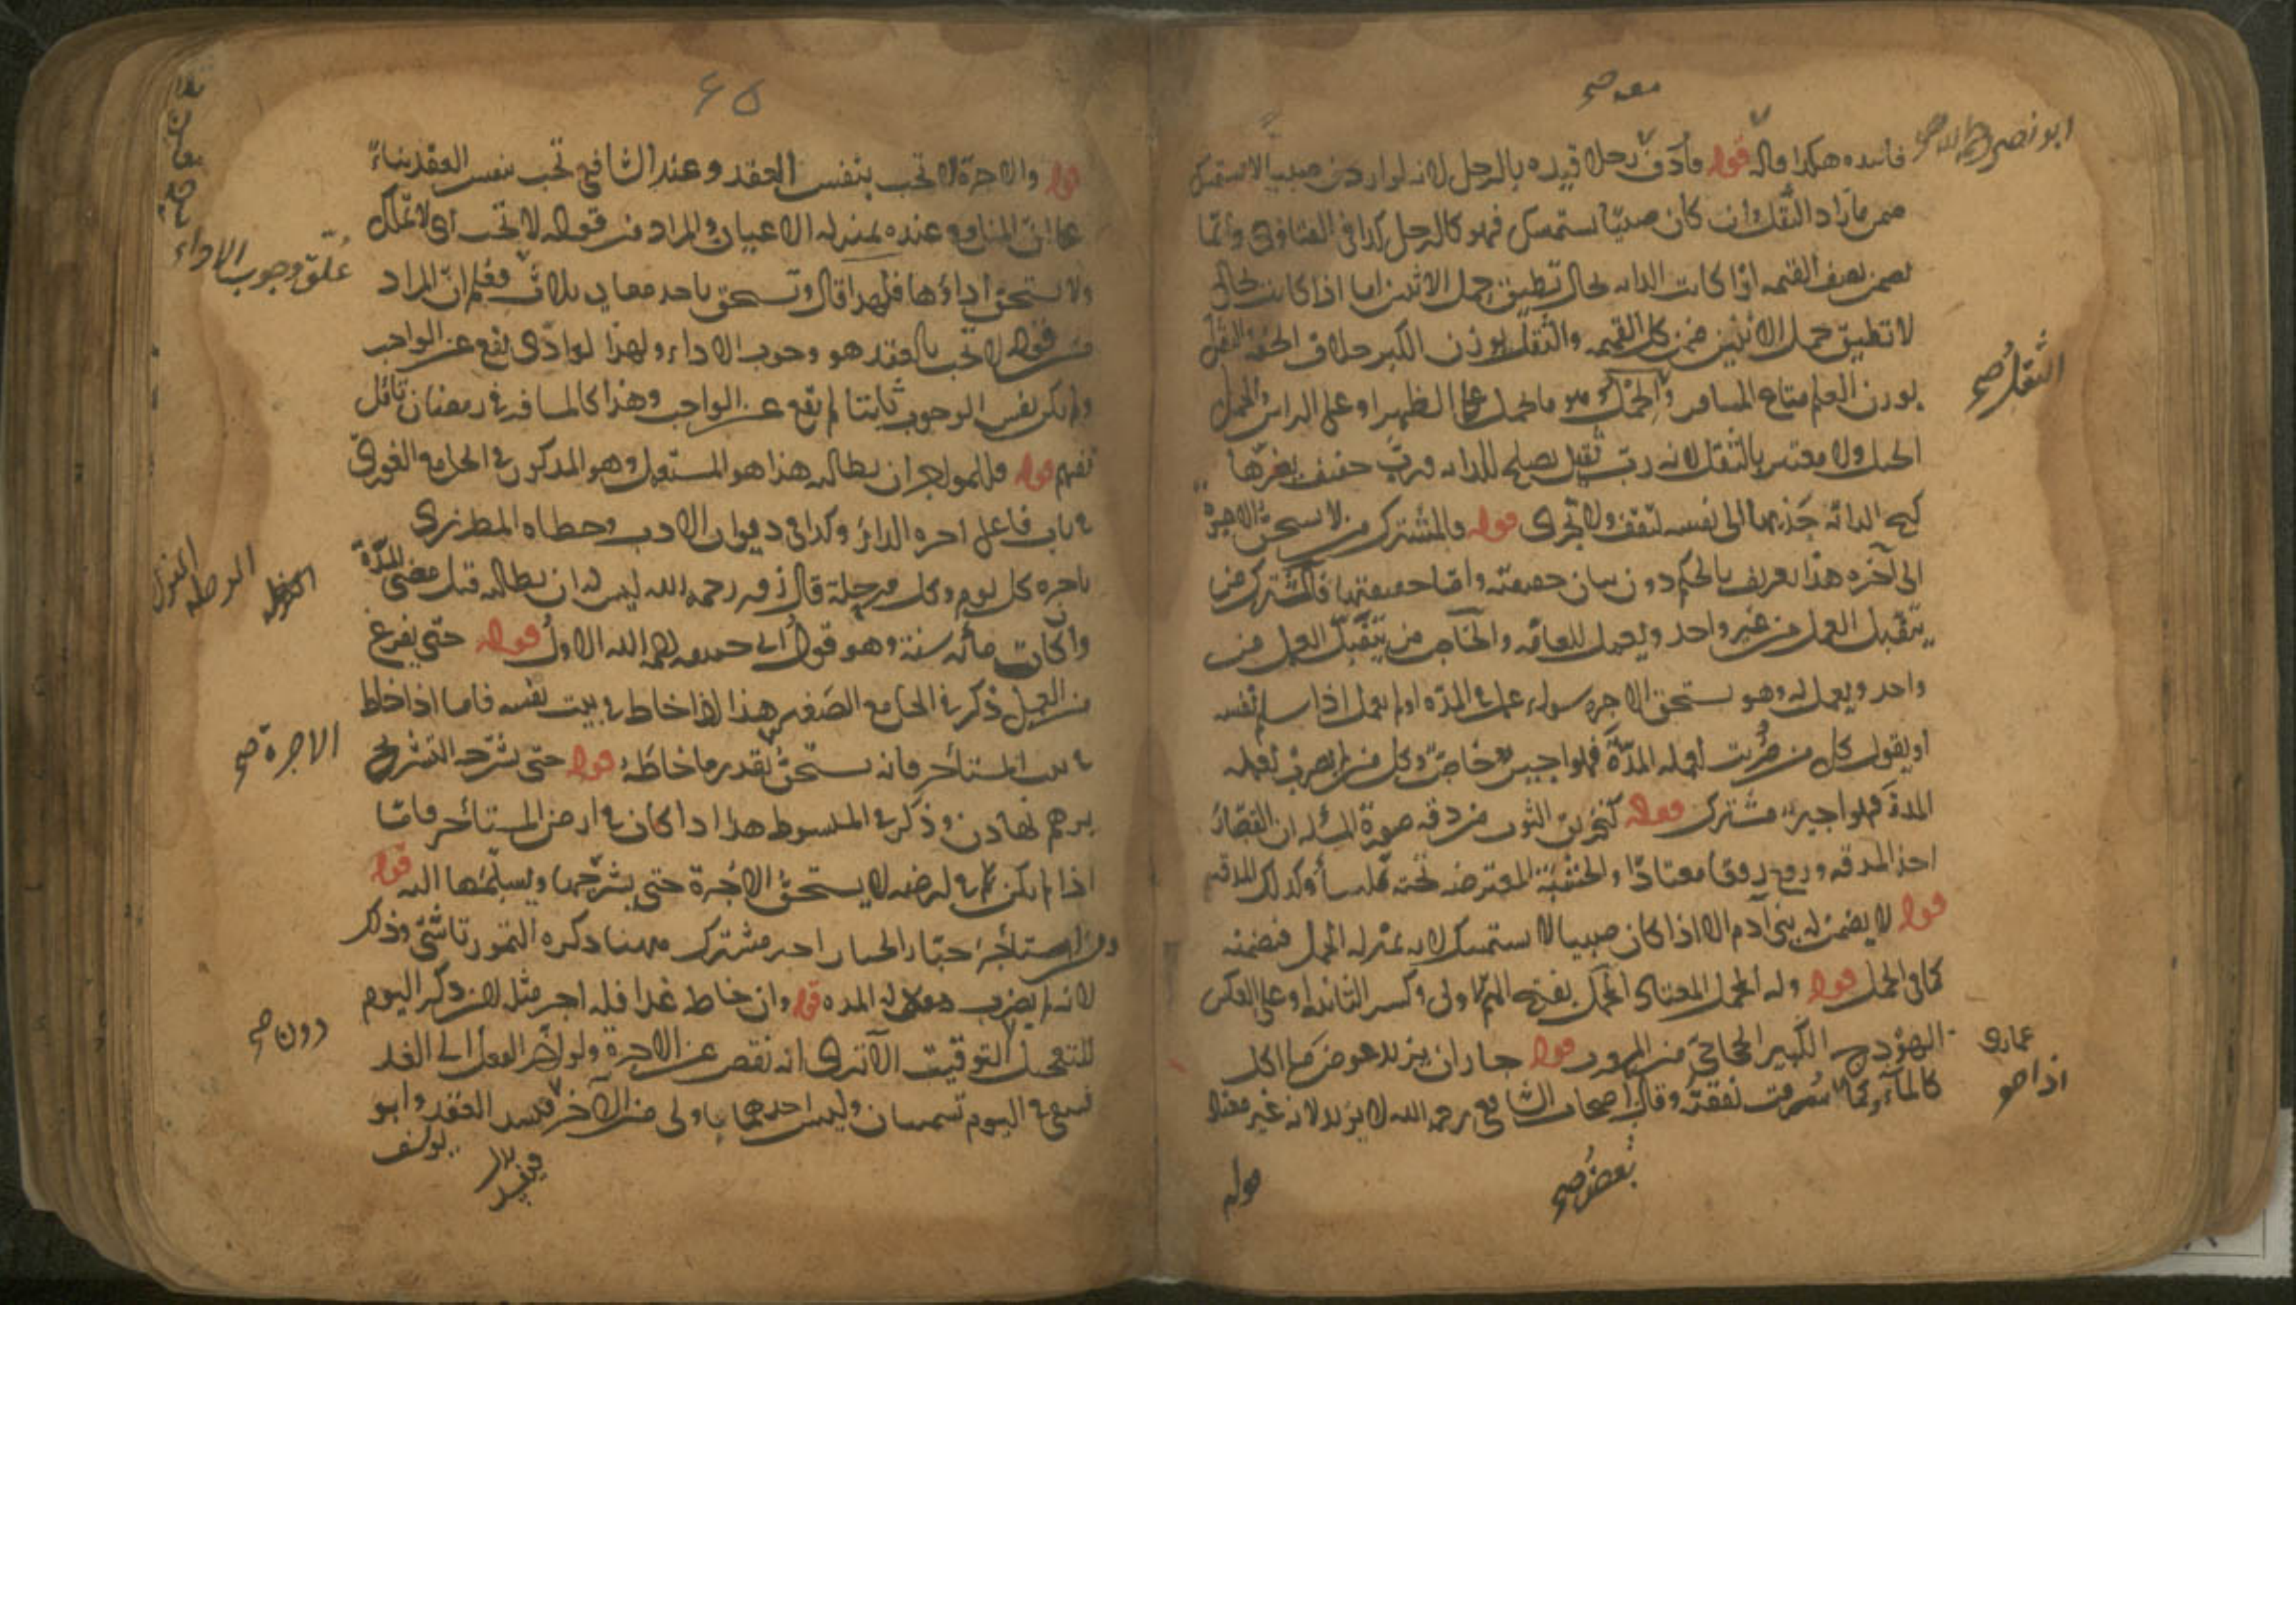 معه صح
ابو نصر رحمه الله صح
فاسده هكذا قاله قوله فاردف رجلا قيده بالرجل لانه لو اردف صبيا لا يستمسك
ضمن ما زاد الثقل وان كان صبيا يستمسك فهو كالرجل كذا في الفتاوى وانما
يضمن نصف القيمه اذا كانت الدابه بحال تطيق حمل الاثنين اما اذا كانت بحال
لا تطيق حمل الاثنين ضمن كل القيمه والثقل بوزن الكبر خلاف الخفة الثقل
بوزن العلم متاع المسافر والحمل هو ما يحمل على الظهر او على الراس والحمل
الثقل صح
الحبل ولا معتبر بالثقل لانه رب ثقيل يصلح للدابه ورب خفيف يعقرها
كبح الدابه جذبها الى نفسه لتقف ولا تجرى قوله فالمشترك من لا يستحق الاجرة
الى آخره هذا تعريف بالحكم دون بيان حقيقته واما حقيقتهما فالمشترك من
يتقبل العمل من غير واحد ويعمل للعامه والخاص من يتقبل العمل من
واحد ويعمل له وهو يستحق الاجره سواء عمل في المدة او لم يعمل اذا سلم نفسه
او يقول كل من ضربت لعمله المدة فهو اجير خاص وكل من لم يضرب لعمله
المدة فهو اجير مشترك قوله كتخريق الثوب من دقه صورة المسئله ان القصار
اخذ المدقه ودق دقا معتادا والخشبة المعترضه تحته ملساء وكذلك المدقه
قوله لا يضمن له بنى آدم الا اذا كان صبيا لا يستمسك لانه بمنزله الحمل فيضمنه
كما فى الحمل قوله وله المحمل المعتاد المحمل بفتح الميم الاولى وكسر الثانيه او على العكس
الهودج الكبير الحجاجى من المرور قوله جاز ان يزيد عوض ما اكل
عمارة
اذا صح
كالماء وكما سرقت نفقته وقال اصحاب الشافعى رحمه الله لا يزيد لانه غير معتاد
بعض صح
قوله
٤٥
قوله والاجرة لا تجب بنفس العقد وعند الشافعى تجب بنفس العقد بناء
على ان المنافع عنده بمنزله الاعيان والمراد من قوله لا تجب اى لا تملك
علق وجوب الاداء
ولا يستحق اداؤها فلهذا قال وتستحق باحد معان ثلاث فعلم ان المراد
من قوله لا تجب بالعقد هو وجوب الاداء ولهذا لو ادى يقع عن الواجب
ولو لم يكن نفس الوجوب ثابتا لم يقع عن الواجب وهذا كالمسافر في رمضان تامل
تفهم قوله وللمواجر ان يطالبه هذا هو المستعمل وهو المذكور في الجامع الغورى
في باب فاعل اجره الدار وكذا فى ديوان الادب وخطاه المطرزى
باجره كل يوم وكل مرحلة قال زفر رحمه الله ليس له ان يطالبه قبل مضى المدة
وان كانت مائه سنة وهو قول ابى حنيفه رحمه الله الاول قوله حتى يفرغ
من العمل ذكر في الجامع الصغير هذا اذا خاط في بيت نفسه فاما اذا خاط
في بيت المستاجر فانه يستحق بقدر ما خاطه قوله حتى يشرجه التشريج
الاجرة صح
برهم نهادن وذكر في المبسوط هذا اذا كان في ارض المستاجر فاما
اذا لم يكن في ارضه لا يستحق الاجرة حتى يشرجها ويسلمها اليه قوله
ومن استاجر خبازا الخباز اجير مشترك ههنا ذكره التمورتاشى وذلك
لانه لم يضرب لعمله المده قوله وان خاط غدا فله اجر مثله لان ذكر اليوم
دون صح
للتعجيل التوقيت الا ترى انه نقص عن الاجرة ولو اخر العمل الى الغد
فيبقى في اليوم تسميتان وليس احدهما باولى من الآخر فيفسد العقد وابو
يوسف